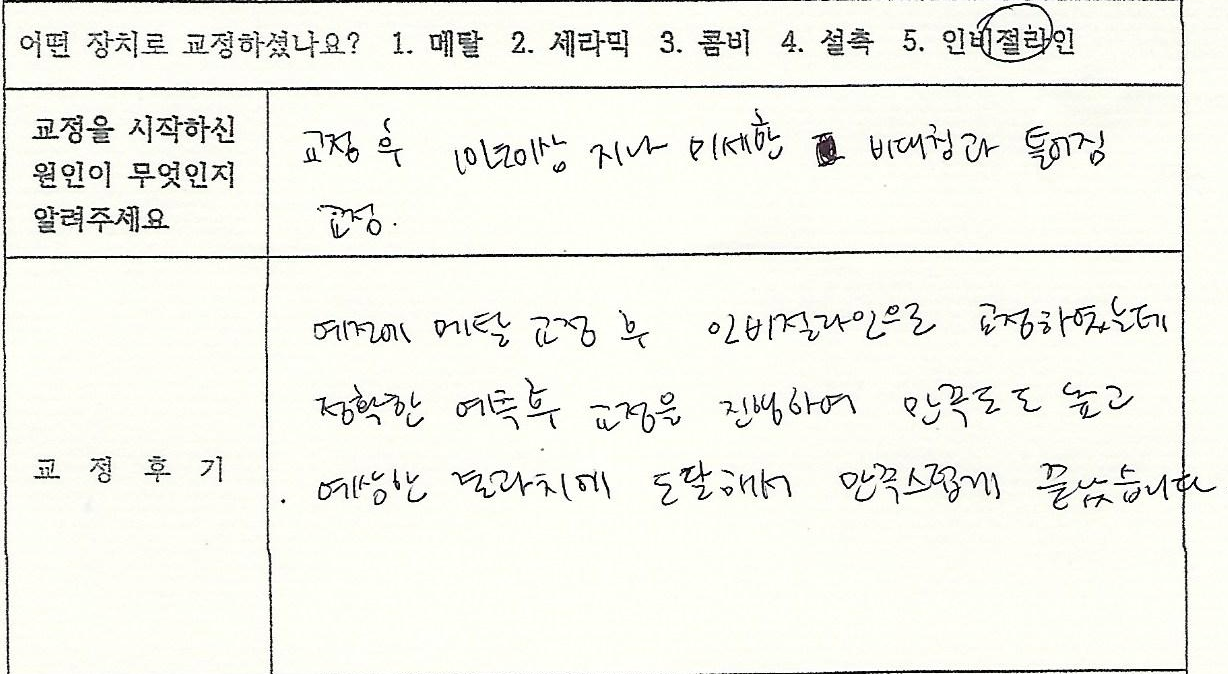 어떤 장치로 교정하셨나요? 1. 메탈 2. 세라믹 3. 콤비 4. 설측 5. 인비절라인
교정을 시작하신
원인이 무엇인지
알려주세요
교정 후 10년이상 지나 미세한 비대칭과 틀어짐
교정.
교 정 후 기
예전에 메탈 교정 후 인비절라인으로 교정하였는데
정확한 예측후 교정을 진행하여 만족도도 높고
예상한 결과치에 도달해서 만족스럽게 끝났습니다